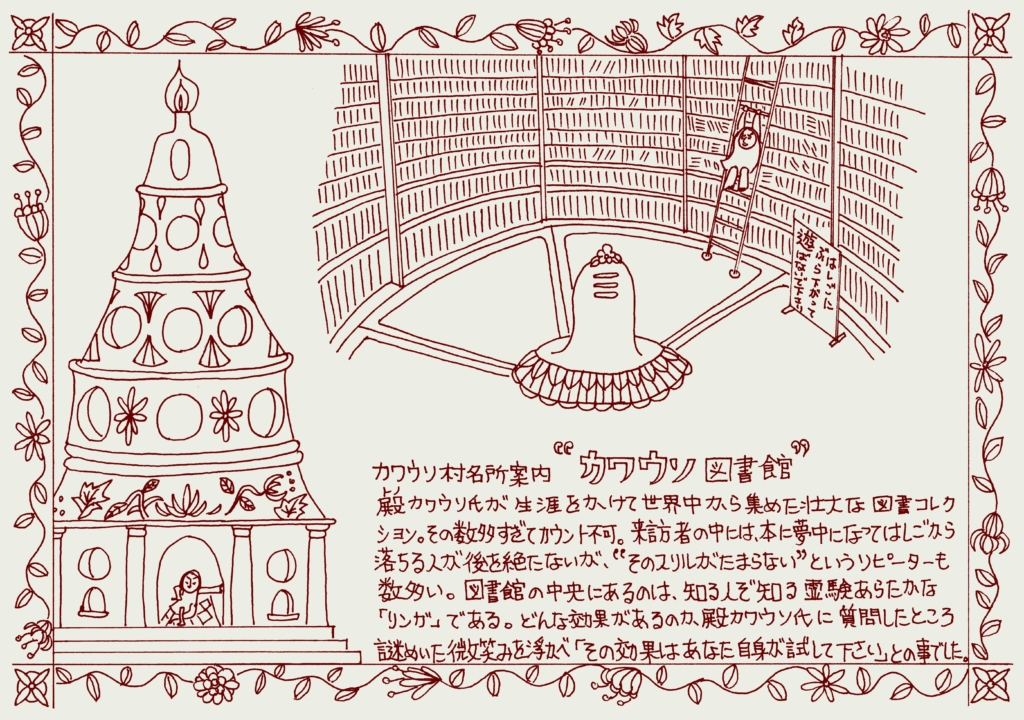 はしごに
ぶら下がって
遊ばないで下さい
カワウソ村名所案内 “カワウソ図書館”
殿カワウソ氏が生涯をかけて世界中から集めた壮大な図書コレク
ション。その数多すぎてカウント不可。来訪者の中には、本に夢中になってはしごから
落ちる人が後を絶たないが、“そのスリルがたまらない”というリピーターも
数多い。図書館の中央にあるのは、知る人ぞ知る霊験あらたかな
「リンガ」である。どんな効果があるのか、殿カワウソ氏に質問したところ
謎めいた微笑みを浮かべ「その効果はあなた自身が試して下さい」との事でした。